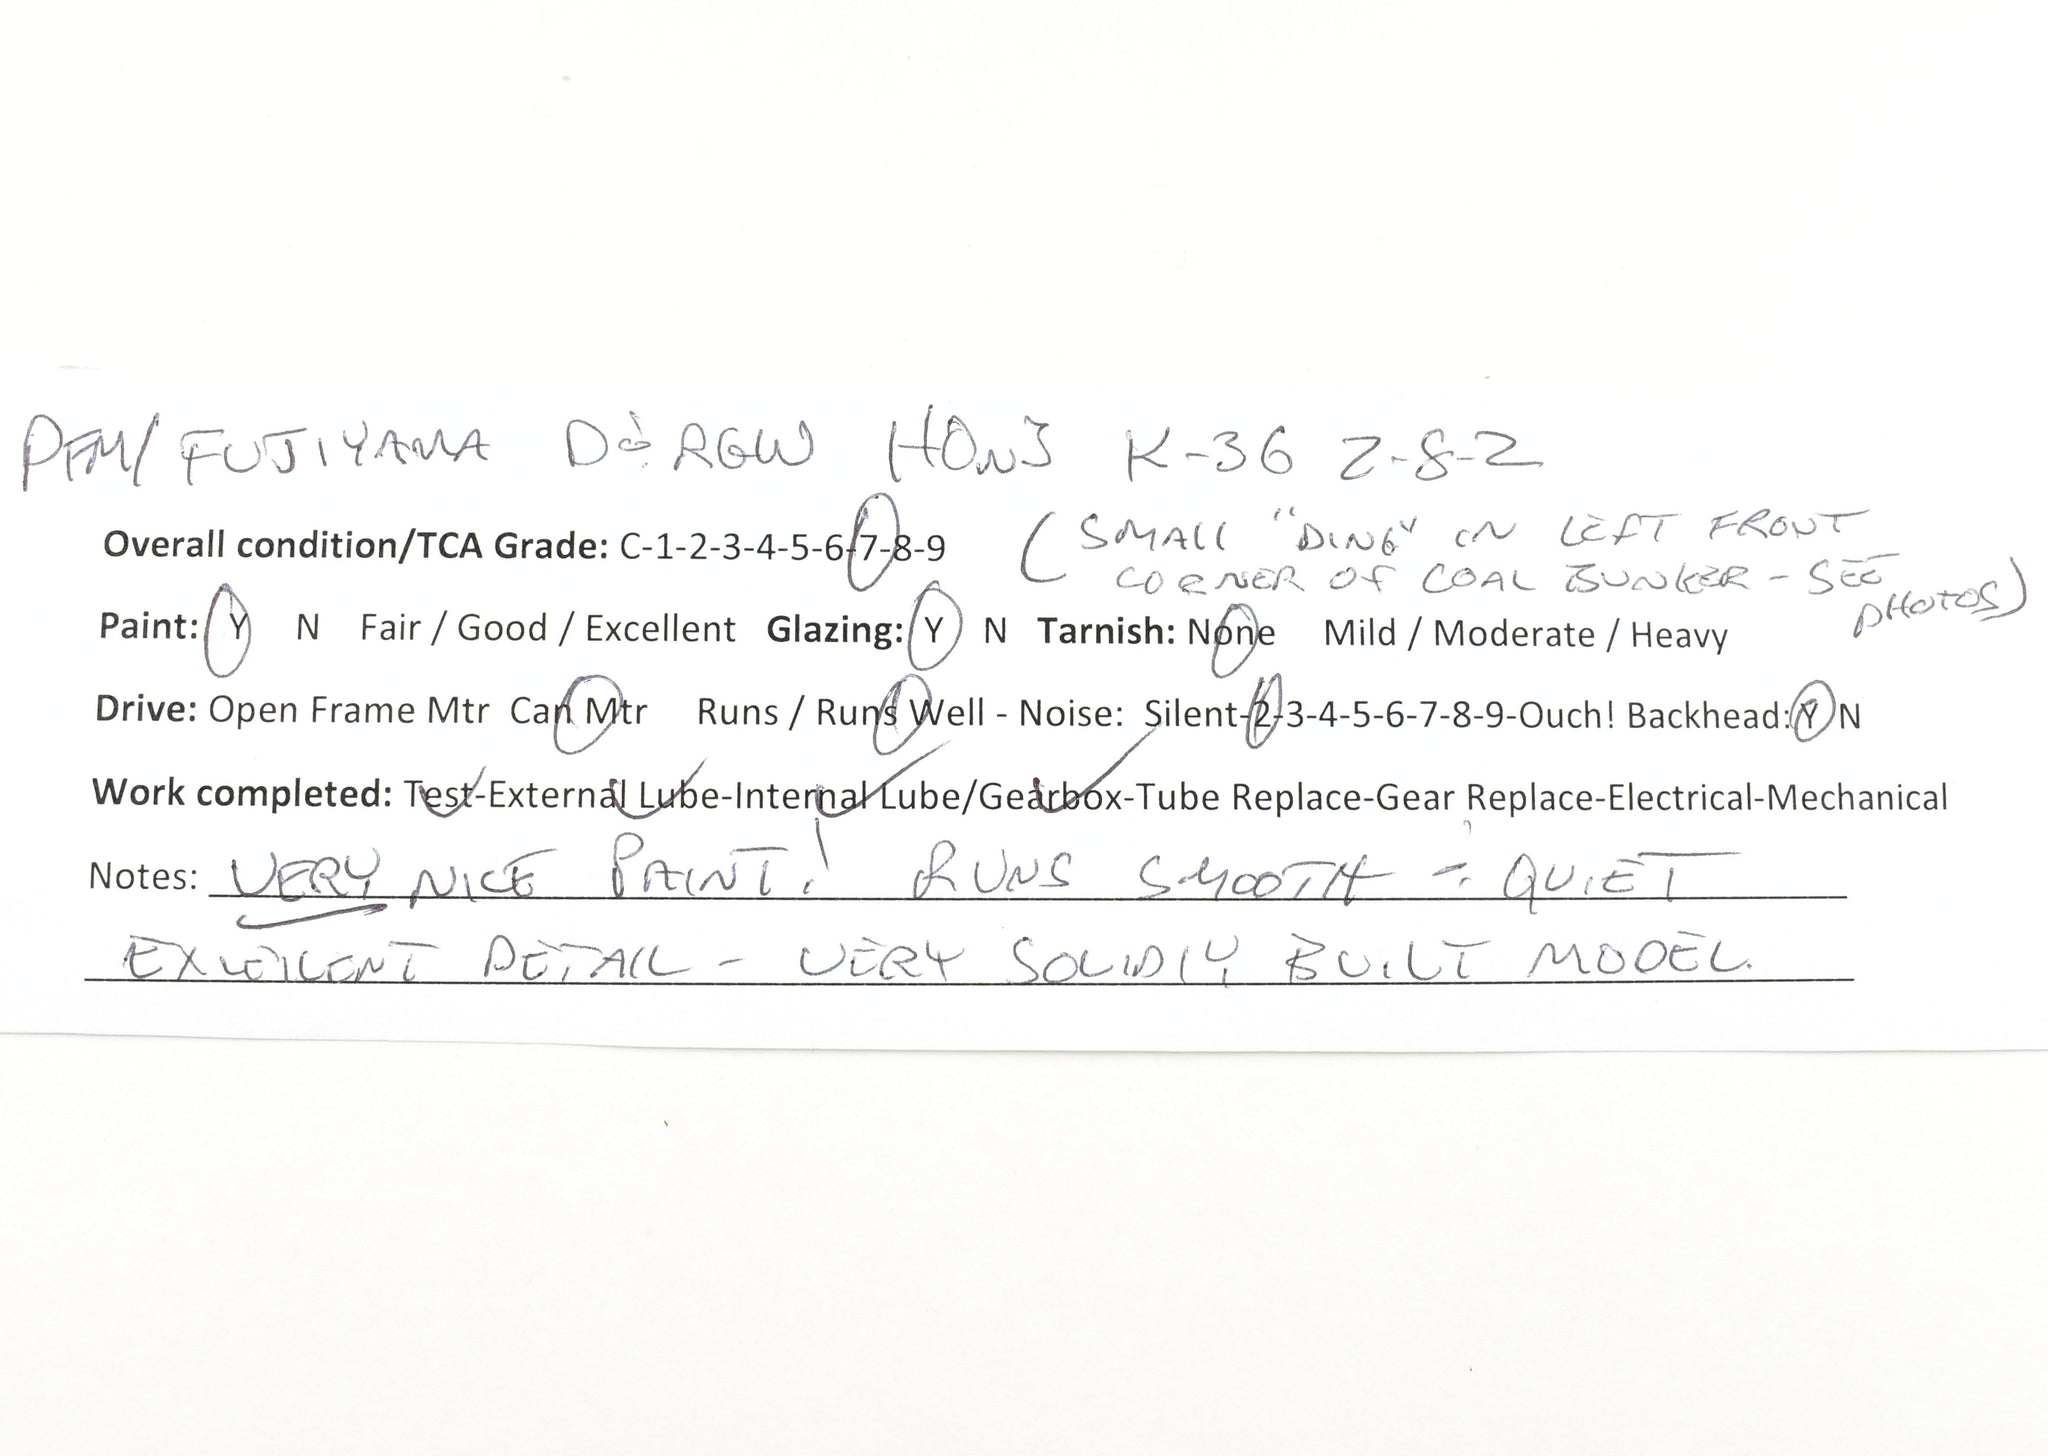 PFM/FUJIYAMA D&RGW HOn3 K-36 2-8-2
Overall condition/TCA Grade: C-1-2-3-4-5-6-7-8-9 (SMALL "DING" ON LEFT FRONT
CORNER OF COAL BUNKER - SEE
PHOTOS)
Paint: Y N Fair / Good / Excellent Glazing: Y N Tarnish: None Mild / Moderate / Heavy
Drive: Open Frame Mtr Can Mtr Runs / Runs Well - Noise: Silent-2-3-4-5-6-7-8-9-Ouch! Backhead: Y N
Work completed: Test-External Lube-Internal Lube/Gearbox-Tube Replace-Gear Replace-Electrical-Mechanical
Notes: VERY NICE PAINT! RUNS SMOOTH & QUIET
EXCELLENT DETAIL - VERY SOLIDLY BUILT MODEL.